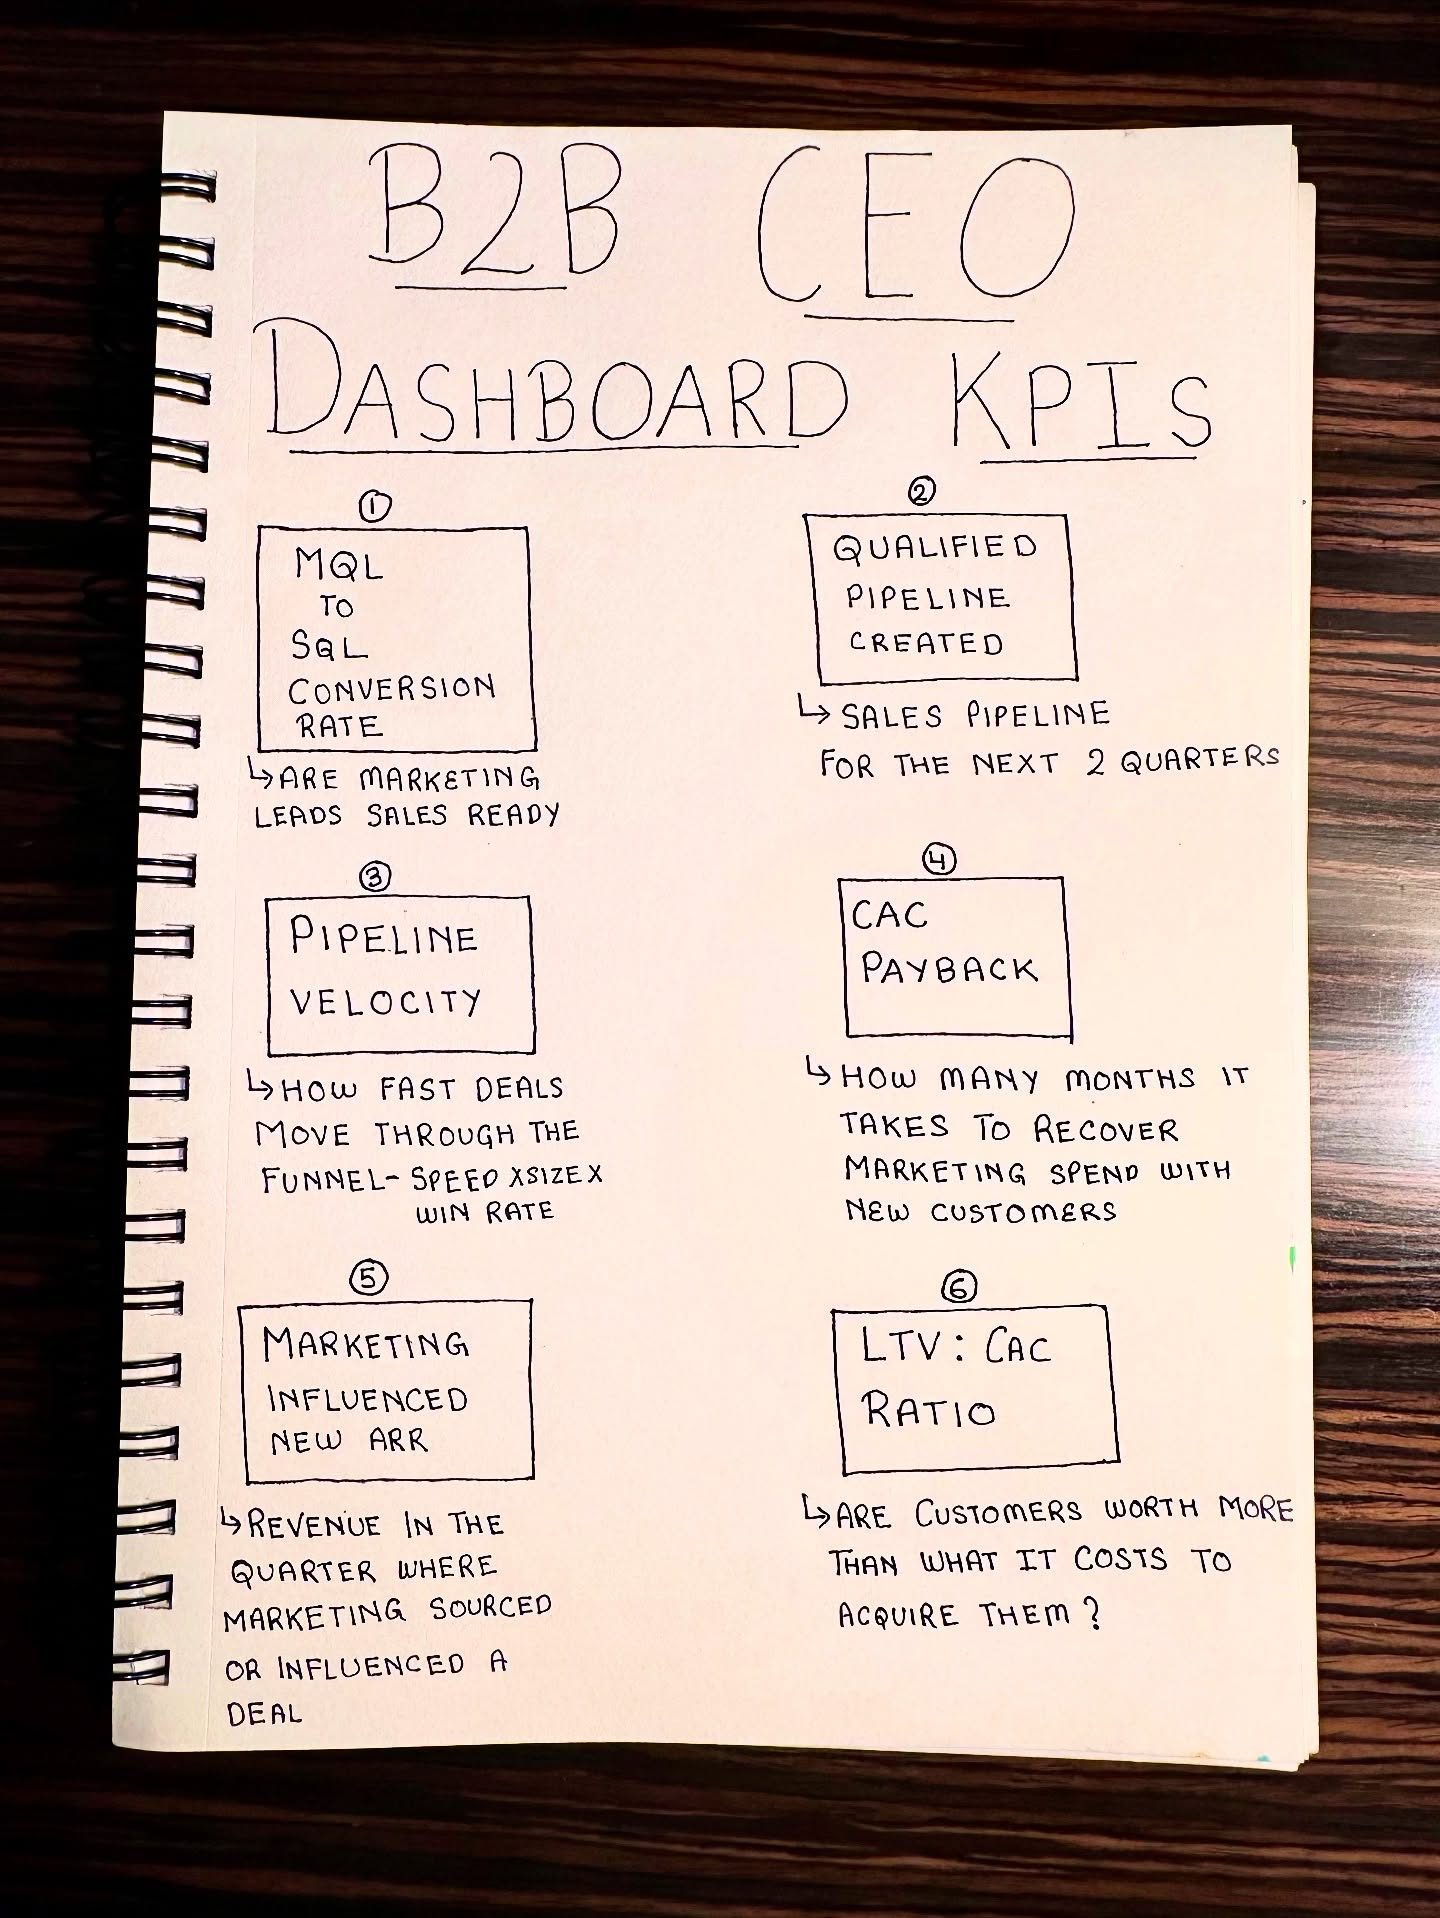 B2B CEO
DASHBOARD KPIs
①
MQL
TO
SQL
CONVERSION
RATE
↳ ARE MARKETING
LEADS SALES READY
②
QUALIFIED
PIPELINE
CREATED
↳ SALES PIPELINE
FOR THE NEXT 2 QUARTERS
③
PIPELINE
VELOCITY
↳ HOW FAST DEALS
MOVE THROUGH THE
FUNNEL- SPEED X SIZE X
WIN RATE
④
CAC
PAYBACK
↳ HOW MANY MONTHS IT
TAKES TO RECOVER
MARKETING SPEND WITH
NEW CUSTOMERS
⑤
MARKETING
INFLUENCED
NEW ARR
↳ REVENUE IN THE
QUARTER WHERE
MARKETING SOURCED
OR INFLUENCED A
DEAL
⑥
LTV: CAC
RATIO
↳ ARE CUSTOMERS WORTH MORE
THAN WHAT IT COSTS TO
ACQUIRE THEM?